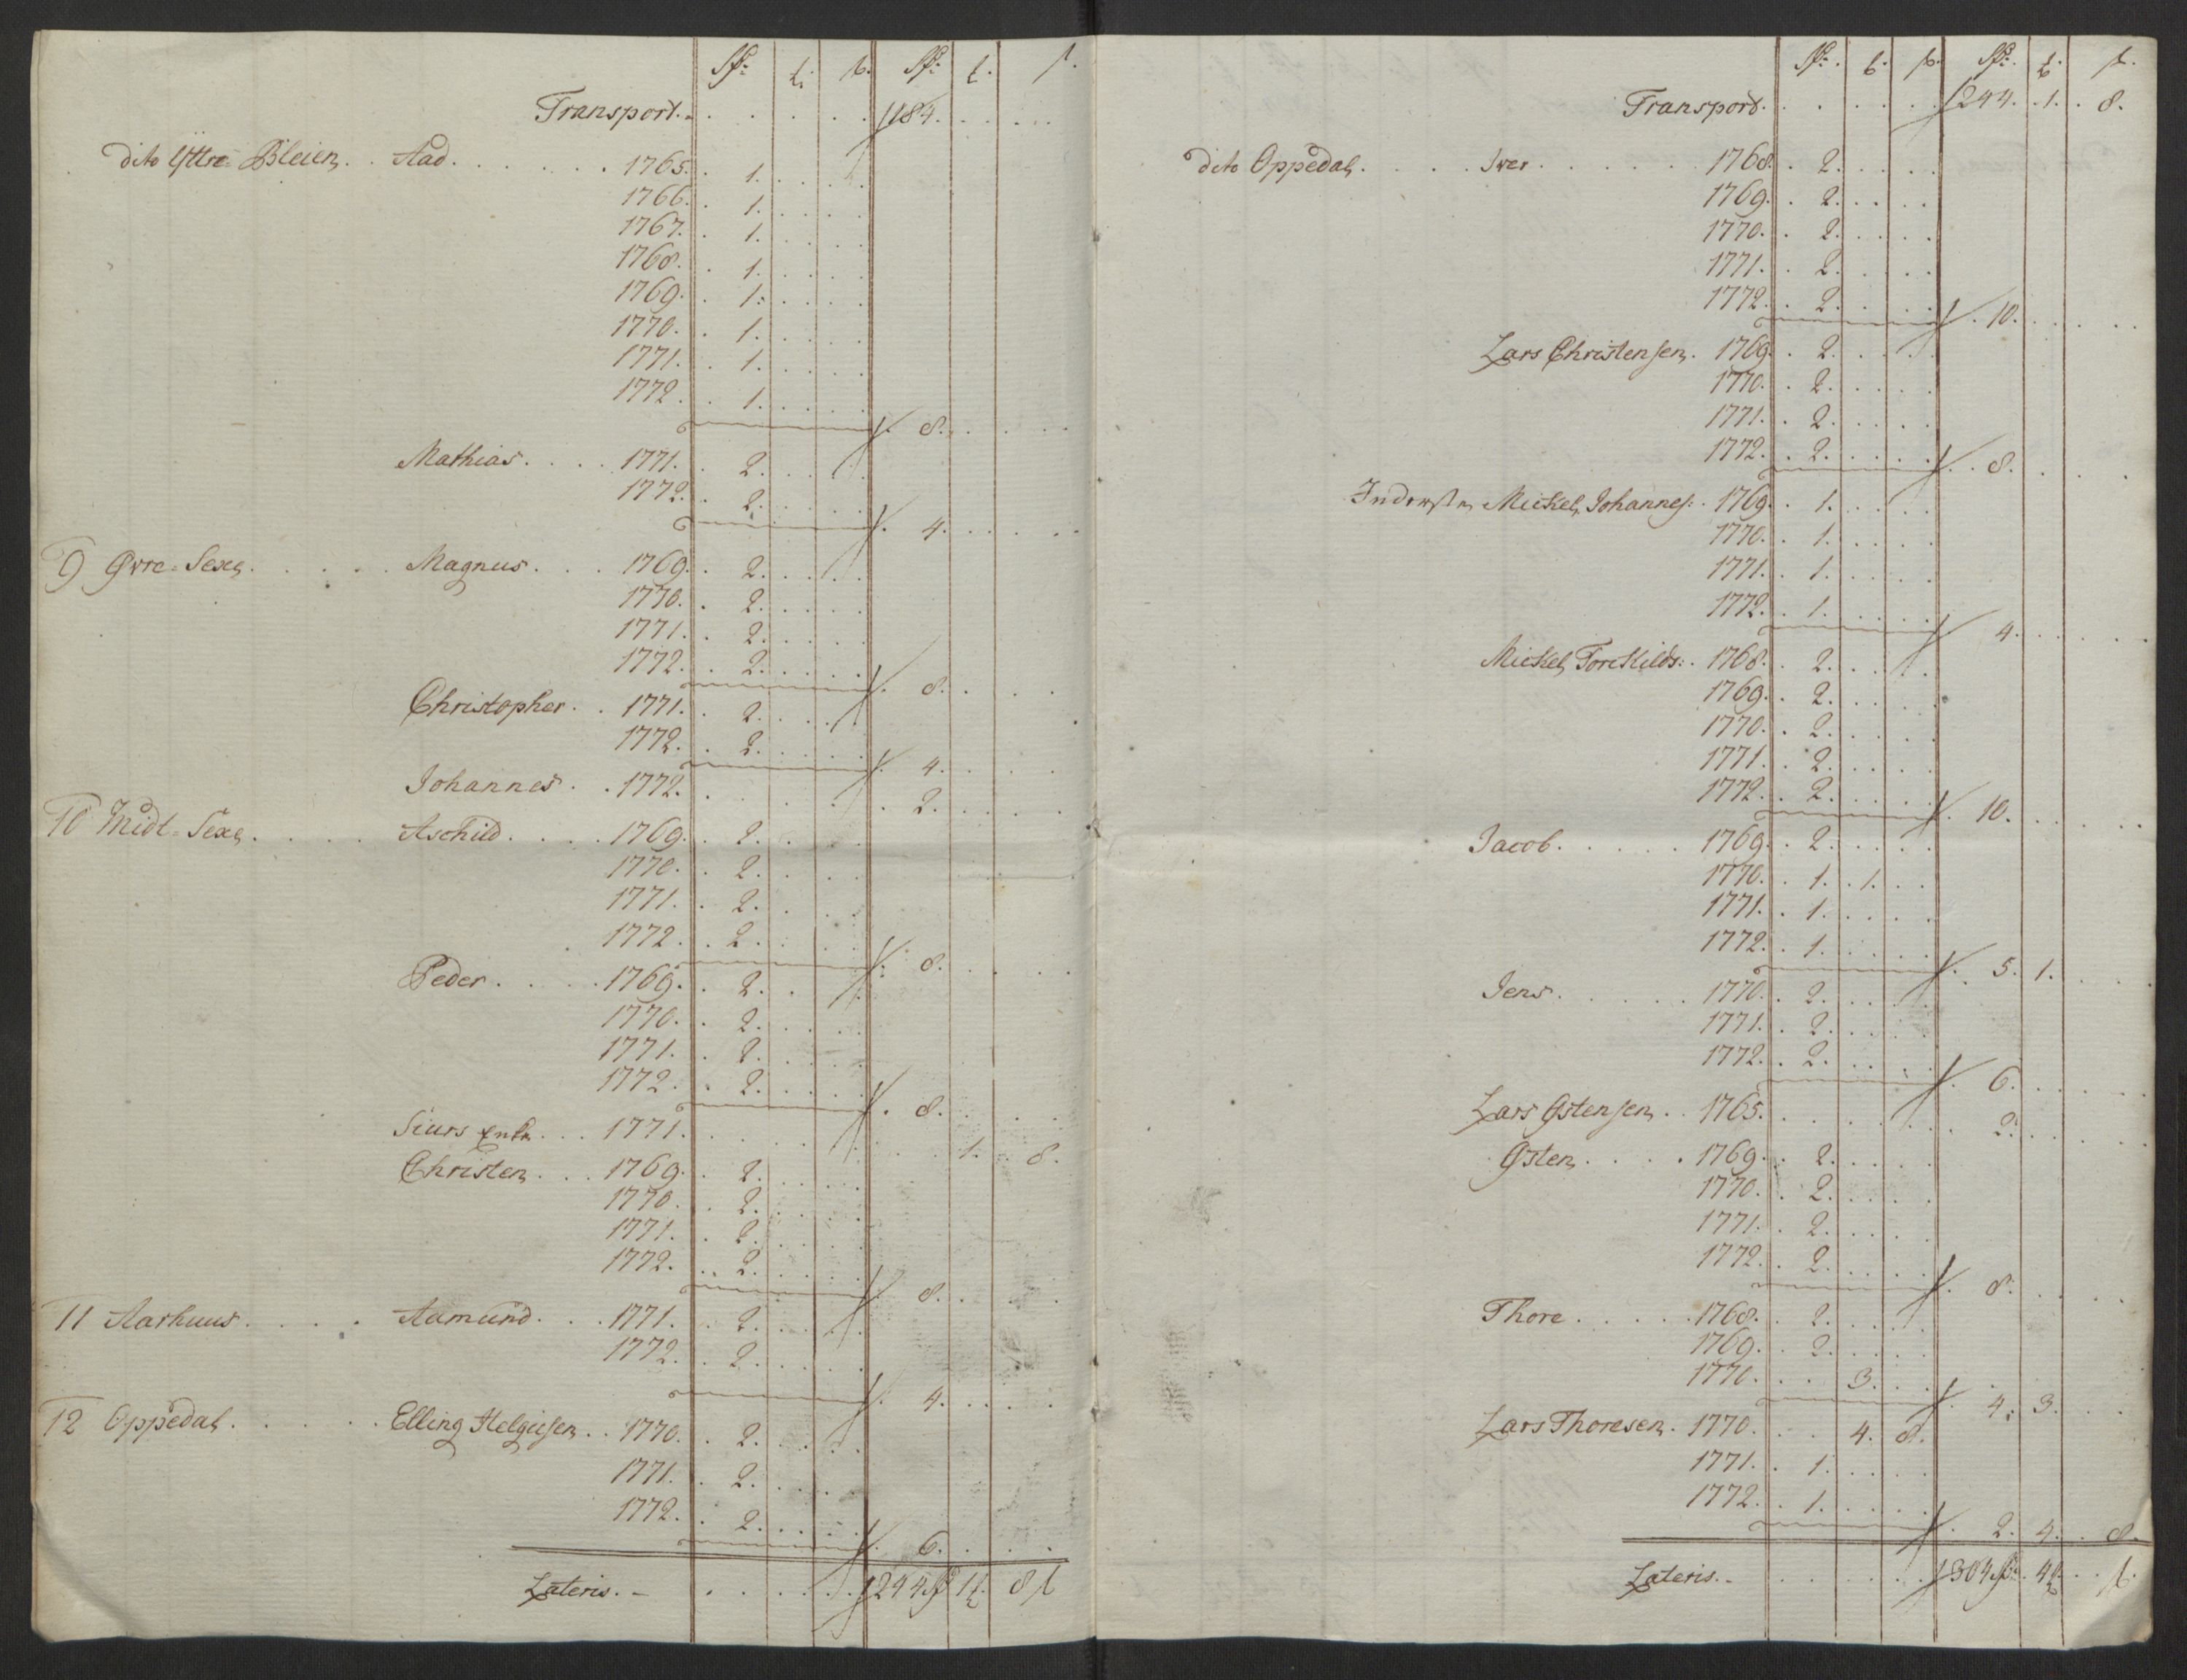 Transport. 184.
dito Yttre-Bleien. Aad. 1765. 1.
1766. 1.
1767. 1.
1768. 1.
1769. 1.
1770. 1.
1771. 1.
1772. 1.
8.
Mathias. 1771. 2.
1772. 2.
4.
9 Øvre-Sexe. Magnus. 1769. 2.
1770. 2.
1771. 2.
1772. 2.
8.
Christopher. 1771. 2.
1772. 2.
4.
Johannes. 1772. 2.
10 Midt-Sexe. Aschild. 1769. 2.
1770. 2.
1771. 2.
1772. 2.
8.
Peder. 1769. 2.
1770. 2.
1771. 2.
1772. 2.
8.
Siurs Enke. 1771. 1. 8.
Christen. 1769. 2.
1770. 2.
1771. 2.
1772. 2.
8.
11 Aarhuus. Aamund. 1771. 2.
1772. 2.
4.
12 Oppedal. Elling Helgiesen. 1770. 2.
1771. 2.
1772. 2.
6.
Lateris. 244 1 8
Transport. 244. 1. 8.
dito Oppedal. Iver. 1768. 2.
1769. 2.
1770. 2.
1771. 2.
1772. 2.
10.
Lars Christensen. 1769. 2.
1770. 2.
1771. 2.
1772. 2.
8.
Inderste Mickel Johannes: 1769. 1.
1770. 1.
1771. 1.
1772. 1.
4.
Mickel Torkilds: 1768. 2.
1769. 2.
1770. 2.
1771. 2.
1772. 2.
10.
Jacob. 1769. 2.
1770. 1. 1.
1771. 1.
1772. 1.
5. 1.
Jens. 1770. 2.
1771. 2.
1772. 2.
6.
Lars Østensen. 1765. 2.
Østen. 1769. 2.
1770. 2.
1771. 2.
1772. 2.
8.
Thore. 1768. 2.
1769. 2.
1770. 3.
4. 3.
Lars Thoresen. 1770. 4. 8.
1771. 1.
1772. 1.
2. 4. 8.
Lateris. 304 4